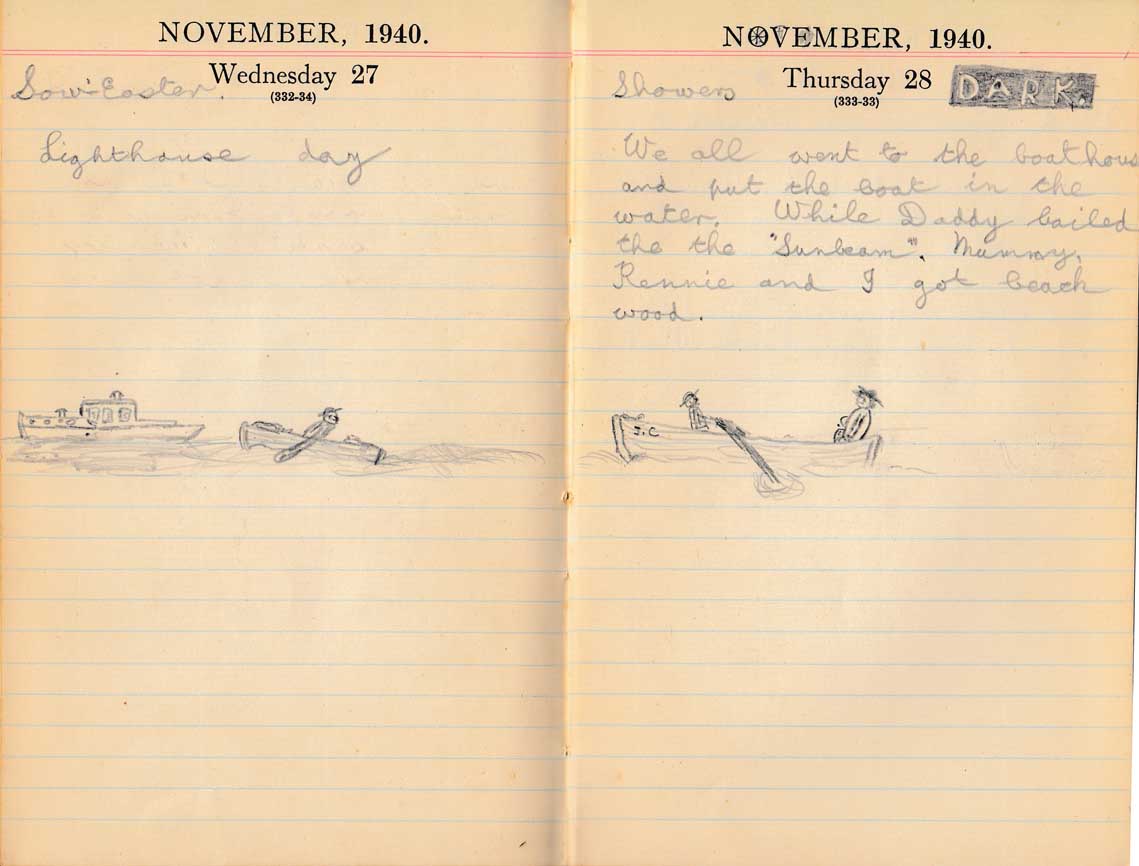 NOVEMBER, 1940.
Wednesday 27
(332-34)
Sow'Easter.
Lighthouse day
NOVEMBER, 1940.
Thursday 28
(333-33)
DARK.
Showers
We all went to the boathous
and put the boat in the
water. While Daddy bailed
the the "Sunbeam". Mummy,
Rennie and I got beach
wood.
J.C